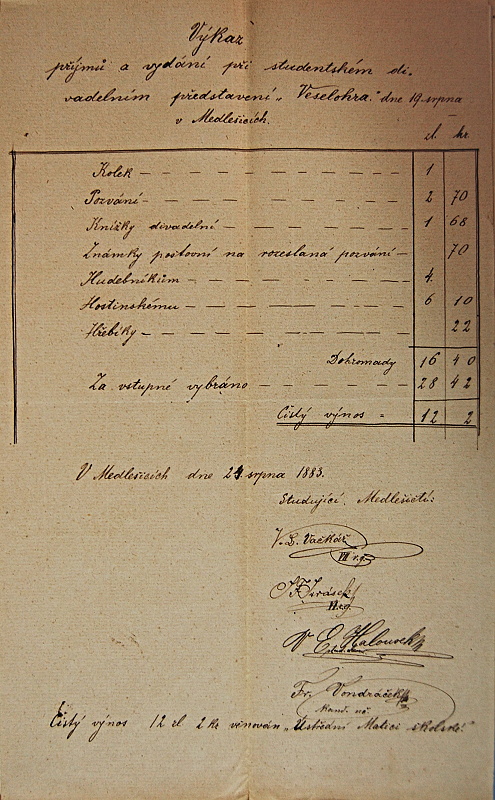 Výkaz
příjmů a vydání při studentském di-
vadelním představení „Veselohra." dne 19 srpna
v Medlešicích.
zl. kr
Kolek — 1
Pozvání — 2 70
Knížky divadelní — 1 68
Známky poštovní na rozeslaná pozvání — 70
Hudebníkům — 4.
Hostinskému — 6 10
Hřebíky — 22
Dohromady 16 40
Za vstupné vybráno — 28 42
Čistý výnos = 12 2
V Medlešicích dne 24 srpna 1883.
Studující Medlešičtí:
V. L. Vačkář
VII r. g.
Jirásek
VI. r. g.
E. Halouzek
Fr. Vondráček
kand. uč.
Čistý výnos 12 zl 2 kr věnován „Ústřední Matici školské"